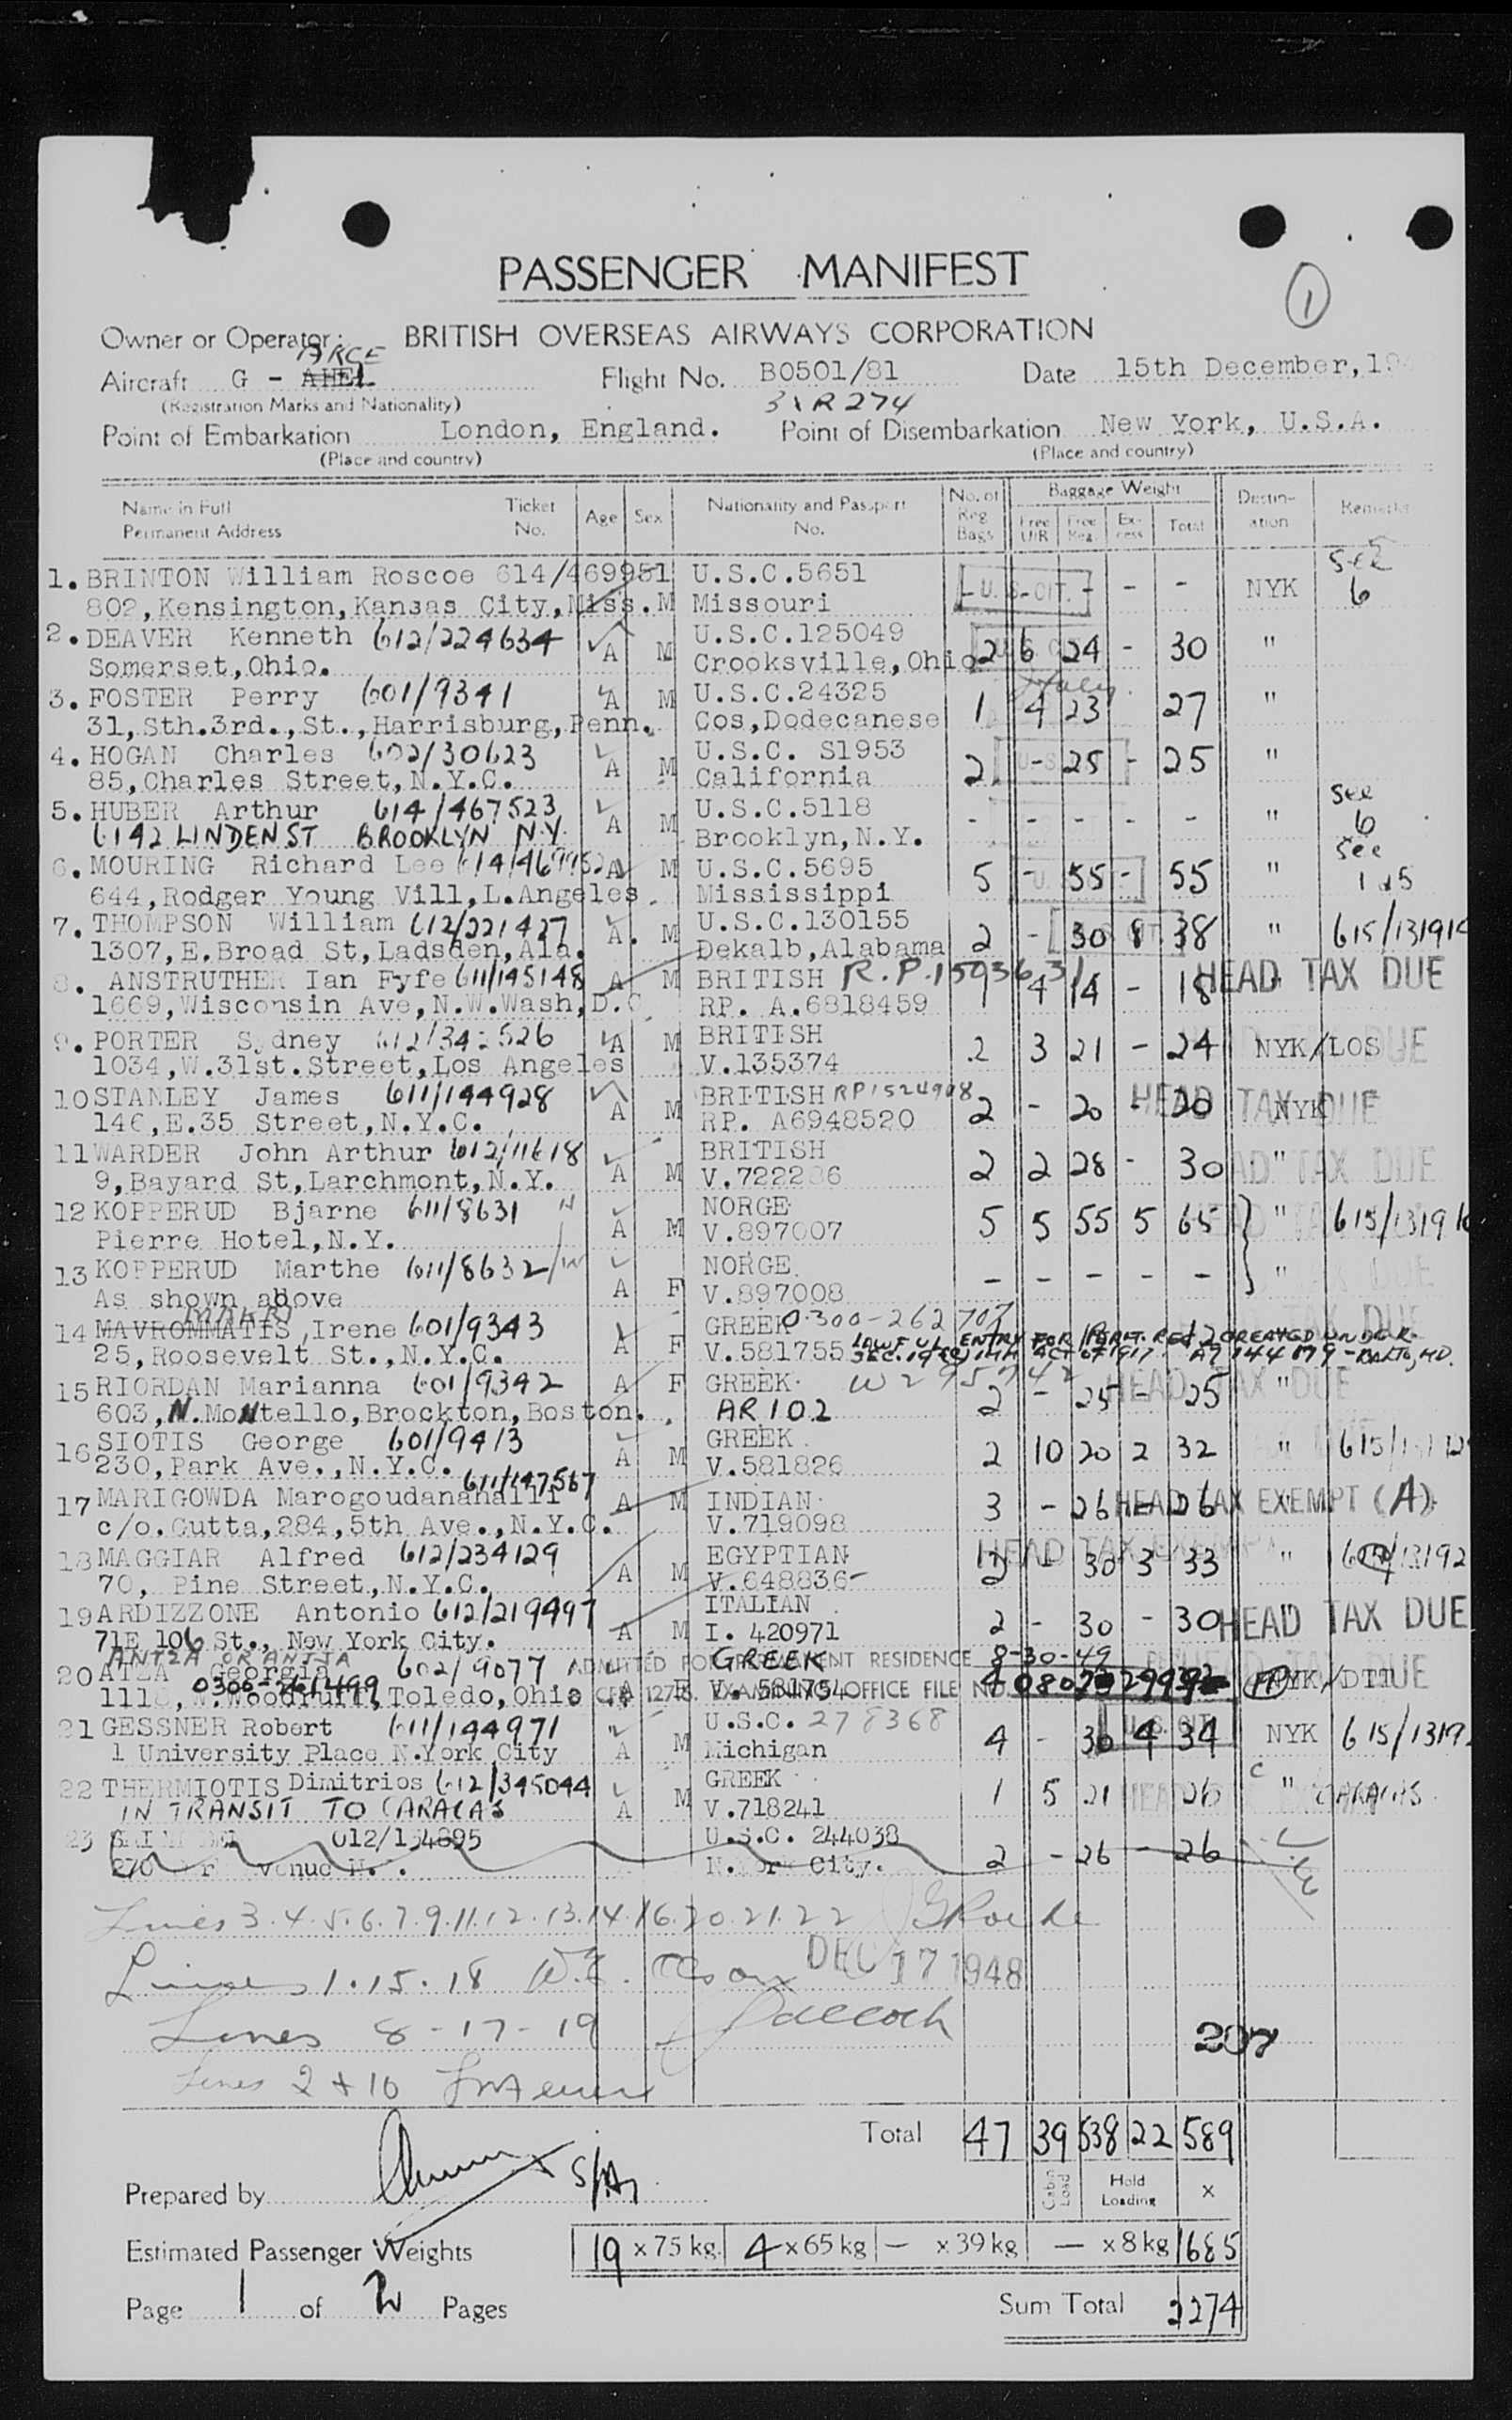 PASSENGER MANIFEST
1
Owner or Operator: BRITISH OVERSEAS AIRWAYS CORPORATION
ARCE
Aircraft G - AHEL Flight No. B0501/81 Date 15th December, 19
(Registration Marks and Nationality)
Point of Embarkation London, England. Point of Disembarkation New York, U.S.A.
(Place and country) (Place and country)
Name in Full Ticket Age Sex Nationality and Passport No. of Baggage Weight Destin- Remarks
Permanent Address No. No. Reg. Bags Free U/R Free Reg. Ex-cess Total ation
1. BRINTON William Roscoe 614/469951 U.S.C.5651 U.S. CIT. - - NYK See
802, Kensington, Kansas City, Miss. M Missouri 6
2. DEAVER Kenneth 612/224634 A M U.S.C.125049 2 6 24 - 30 "
Somerset, Ohio. Crooksville, Ohio
3. FOSTER Perry 601/9341 A M U.S.C.24325 1 4 23 27 "
31, Sth.3rd., St., Harrisburg, Penn. Cos, Dodecanese
4. HOGAN Charles 602/30623 A M U.S.C. S1953 2 - 25 - 25 "
85, Charles Street, N.Y.C. California
5. HUBER Arthur 614/467523 A M U.S.C.5118 - - - - - " See
6142 LINDEN ST BROOKLYN N.Y. Brooklyn, N.Y. 6
6. MOURING Richard Lee A M U.S.C.5695 5 - 55 - 55 " See
644, Rodger Young Vill, L.Angeles. Mississippi
7. THOMPSON William 612/221427 A. M U.S.C.130155 2 - 30 8 38 "
1307, E.Broad St, Ladsden, Ala. Dekalb, Alabama
8. ANSTRUTHER Ian Fyfe 611/145148 A M BRITISH 1 4 14 - 18 HEAD TAX DUE
1669, Wisconsin Ave, N.W. Wash, D.C RP. A.6818459
9. PORTER Sydney A M BRITISH 2 3 21 - 24 NYK/LOS
1034, W.31st. Street, Los Angeles V.135374
10 STANLEY James 611/144928 A M BRITISH 2 - 20 - 20 NYK HEAD TAX DUE
146, E.35 Street, N.Y.C. RP. A6948520
11 WARDER John Arthur 612/11618 A M BRITISH 2 2 28 - 30 "
9, Bayard St, Larchmont, N.Y.
12 KOPPERUD Bjarne 611/8631 A M NORGE 5 5 55 5 65 "
Pierre Hotel, N.Y. V.897007
13 KOPPERUD Marthe 611/8632 A F NORGE. - - - - - "
As shown above V.897008
MAKRI
14 MAVROMMATIS, Irene 601/9343 A F GREEK 0300-262707
25, Roosevelt St., N.Y.C. V.581755
15 RIORDAN Marianna 601/9342 A F GREEK 2 - 25 - 25 "
603, N. Montello, Brockton, Boston. AR 102
16 SIOTIS George 601/9413 A M GREEK 2 10 20 2 32 "
230, Park Ave., N.Y.C. V.581826
611/147567
17 MARIGOWDA A M INDIAN 3 - 26 - 26 HEAD TAX EXEMPT (A)
c/o. Gutta, 284, 5th Ave., N.Y.C. V.719098
18 MAGGIAR Alfred 612/234129 A M EGYPTIAN 2 - 30 3 33 "
70, Pine Street, N.Y.C. V.648836
19 ARDIZZONE Antonio 612/219497 A M ITALIAN 2 - 30 - 30 " HEAD TAX DUE
71E 106 St., New York City. I. 420971
ADMITTED FOR PERMANENT RESIDENCE 8-30-49
20 Georgia 602/9077 GREEK 4
W. Woodruff, Toledo, Ohio V. 581754 EXAMINING OFFICE FILE NO. NYK/DTT
21 GESSNER Robert 611/144971 A M U.S.C. 278368 4 - 30 4 34 NYK
1 University Place N.York City Michigan
22 THERMIOTIS Dimitrios 612/345044 A M GREEK 1 5 21 26 " CARACAS
IN TRANSIT TO CARACAS V.718241
23 612/154895 U.S.C. 244038 2 - 26 - 26
N.York City.
Lines 3.4.5.6.7.9.11.12.13.14.16.20.21.22
Lines 1.15.18 DEC 17 1948
Lines 8-17-19
207
Lines 2 + 10
Total 47 39 538 22 589
Cabin Load Hold Loading x
Prepared by
Estimated Passenger Weights 19 x 75 kg. 4 x 65 kg — x 39 kg — x 8 kg 1685
Page 1 of 2 Pages Sum Total 2274